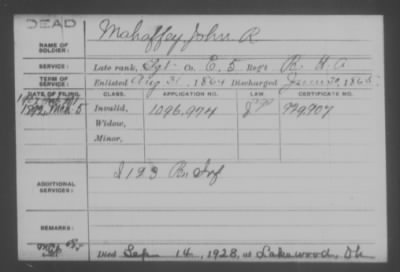 DEAD
NAME OF SOLDIER: Mahaffey John R
SERVICE: Late rank, Sgt Co. E, 5 Reg't H. A
TERM OF SERVICE: Enlisted Aug 31, 1864 Discharged 1865
DATE OF FILING. CLASS. APPLICATION NO. LAW. CERTIFICATE NO.
Invalid, 1096.974 779.707
Widow,
Minor,
ADDITIONAL SERVICES: I 123 Inf
REMARKS:
Died Sep 14, 1928, at Lakewood, Oh